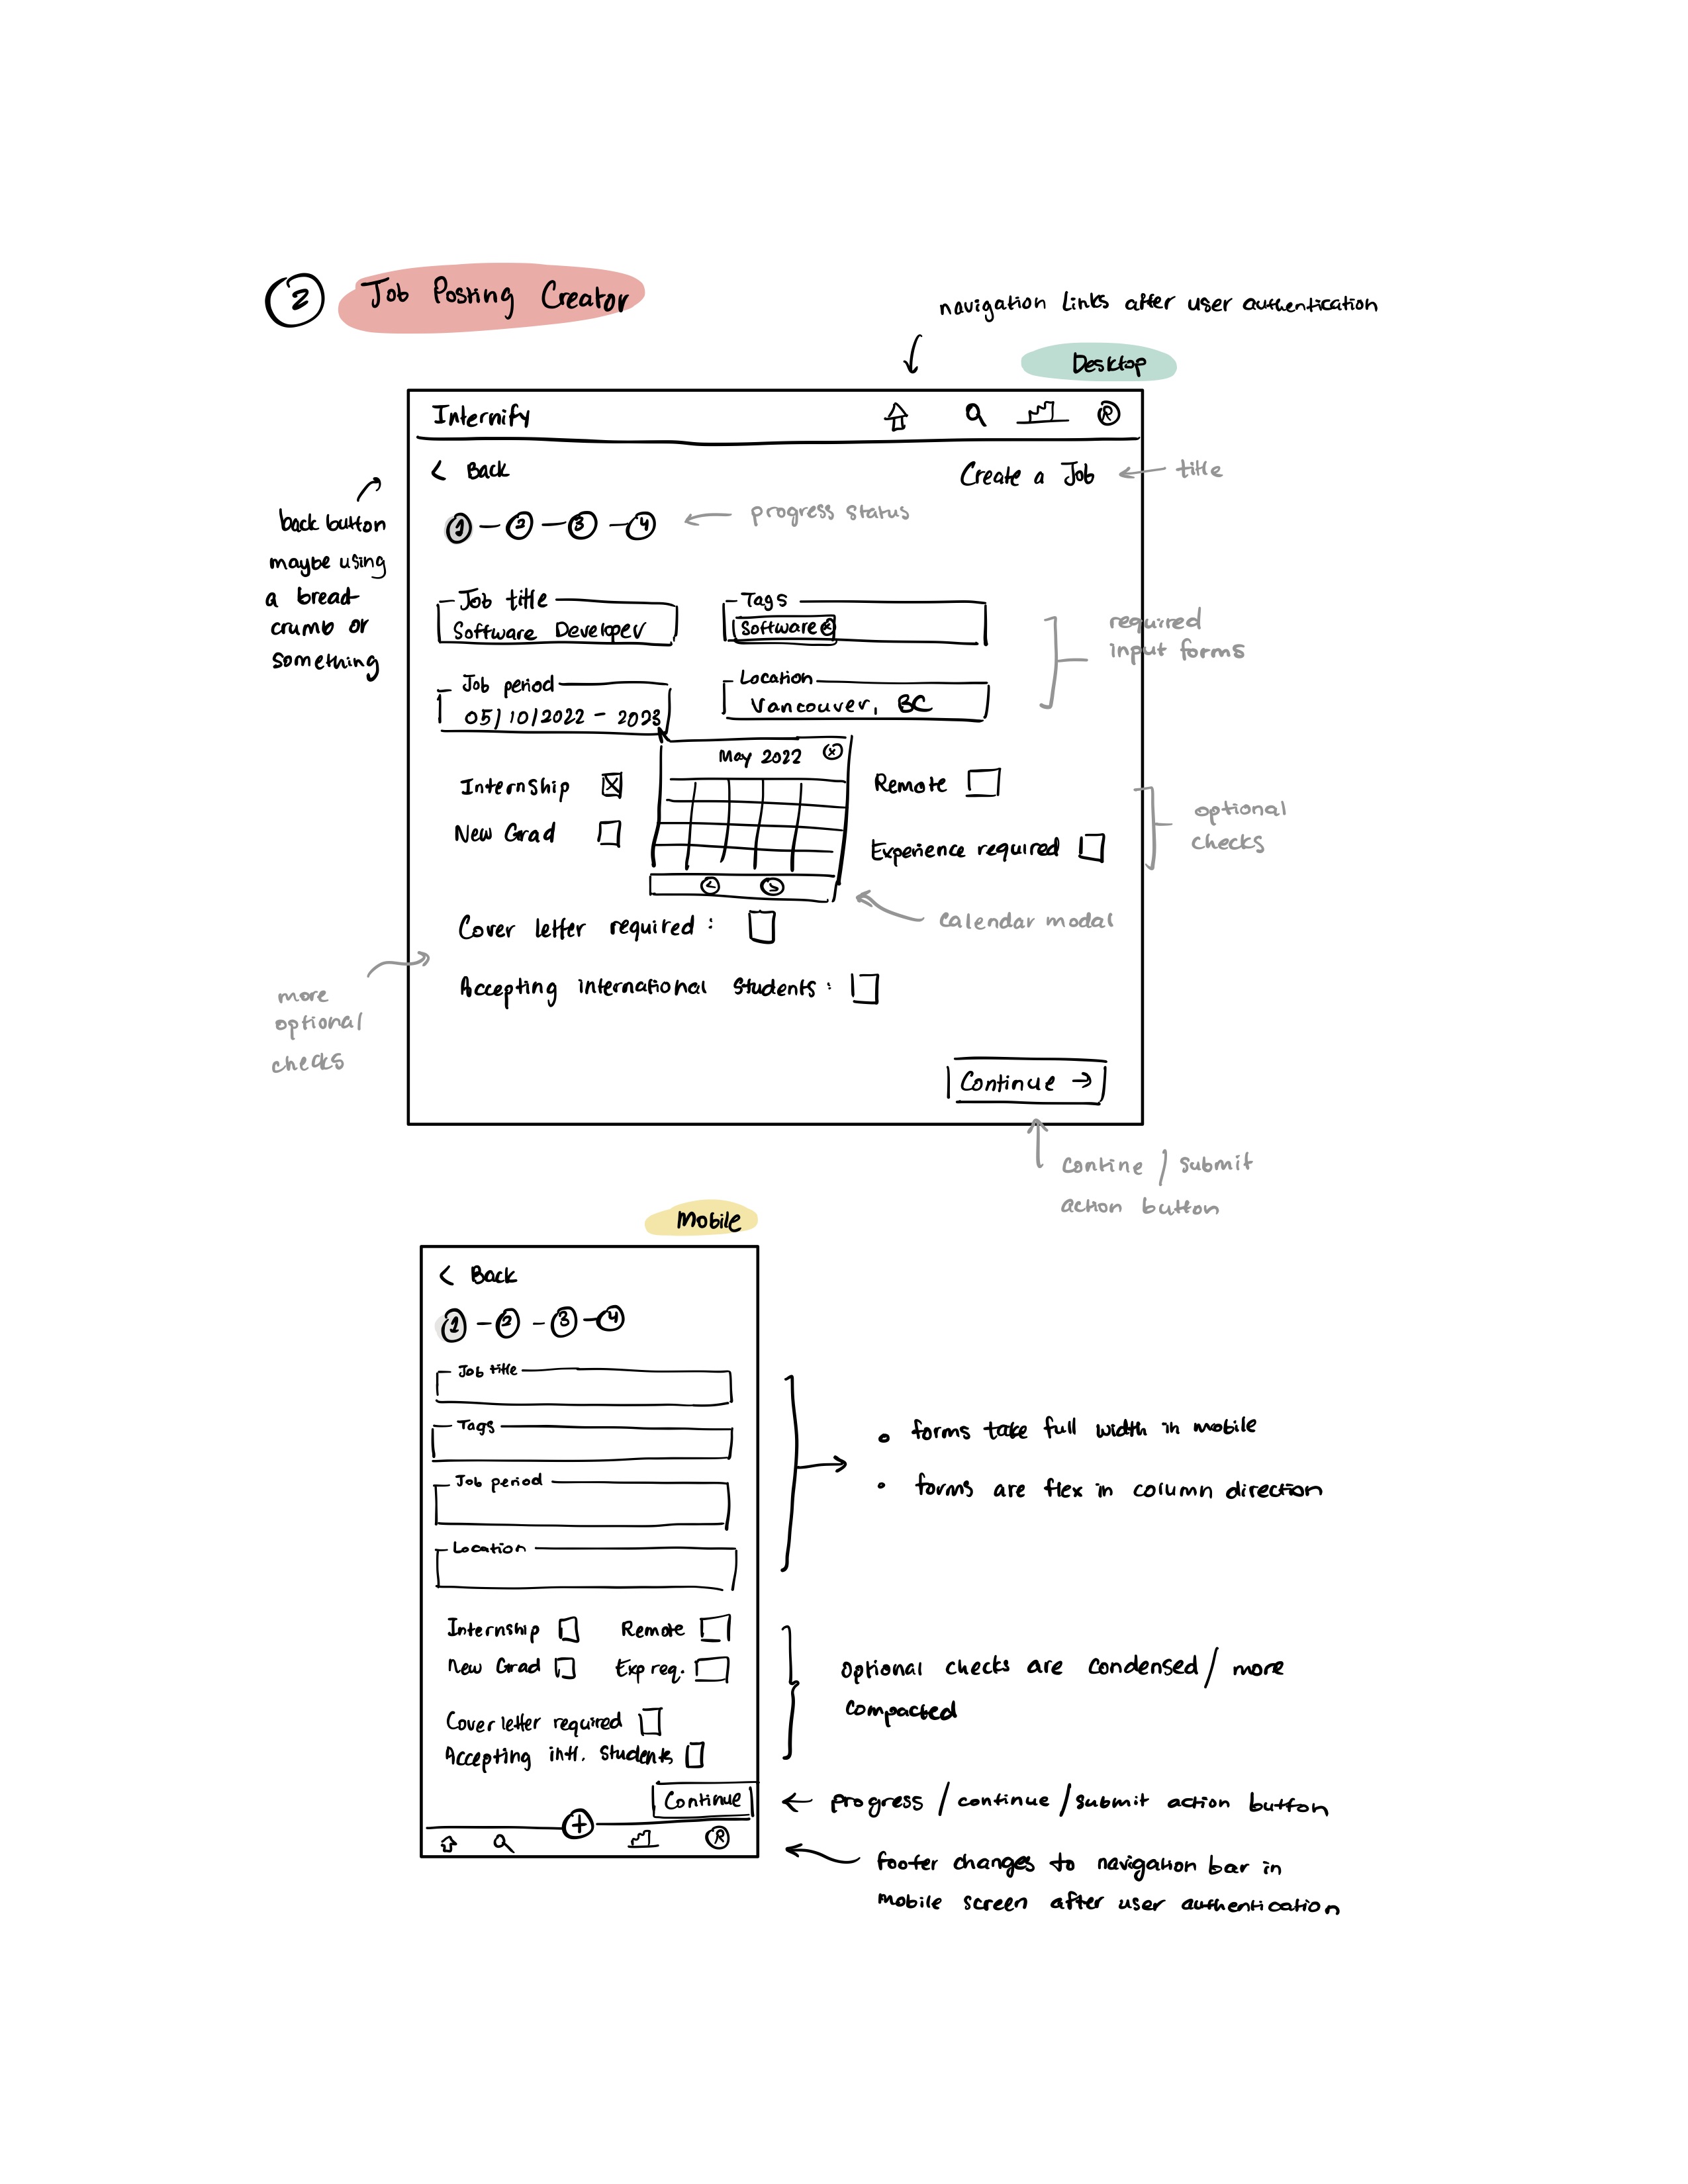 2 Job Posting Creator
navigation links after user authentication
Desktop
Internify
R
< Back
Create a Job
title
1 - 2 - 3 - 4
progress status
back button
maybe using
a bread
crumb or
something
Job title
Software Developer
Tags
Software x
required
input forms
Job period
05/10/2022 - 2023
Location
Vancouver, BC
May 2022 x
Internship x
Remote
New Grad
Experience required
optional
checks
< >
calendar modal
Cover letter required :
Accepting international students :
more
optional
checks
Continue →
contine / submit
action button
Mobile
< Back
1 - 2 - 3 - 4
Job title
Tags
Job period
Location
forms take full width in mobile
forms are flex in column direction
Internship
Remote
New Grad
Exp req.
Cover letter required
Accepting intl. students
optional checks are condensed / more
compacted
Continue
progress / continue / submit action button
+
R
footer changes to navigation bar in
mobile screen after user authentication